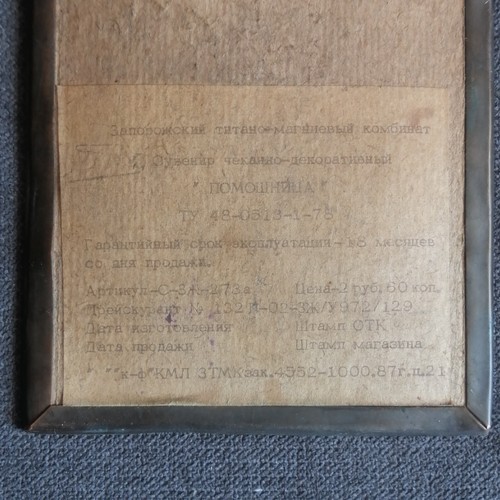 Запорожский титано-магниевый комбинат
Сувенир чеканно-декоративный
"ПОМОЩНИЦА"
ТУ 48-0513-1-75
Гарантийный срок эксплуатации- 18 месяцев
со дня продажи.
Артикул-С-34-273а Цена-2 руб.60 коп.
Прейскурант № 132 ТК/У972/129
Дата изготовления Штамп ОТК
Дата продажи Штамп магазина
КМЛ ЗТМК зак.4552-1000.87г.п.21